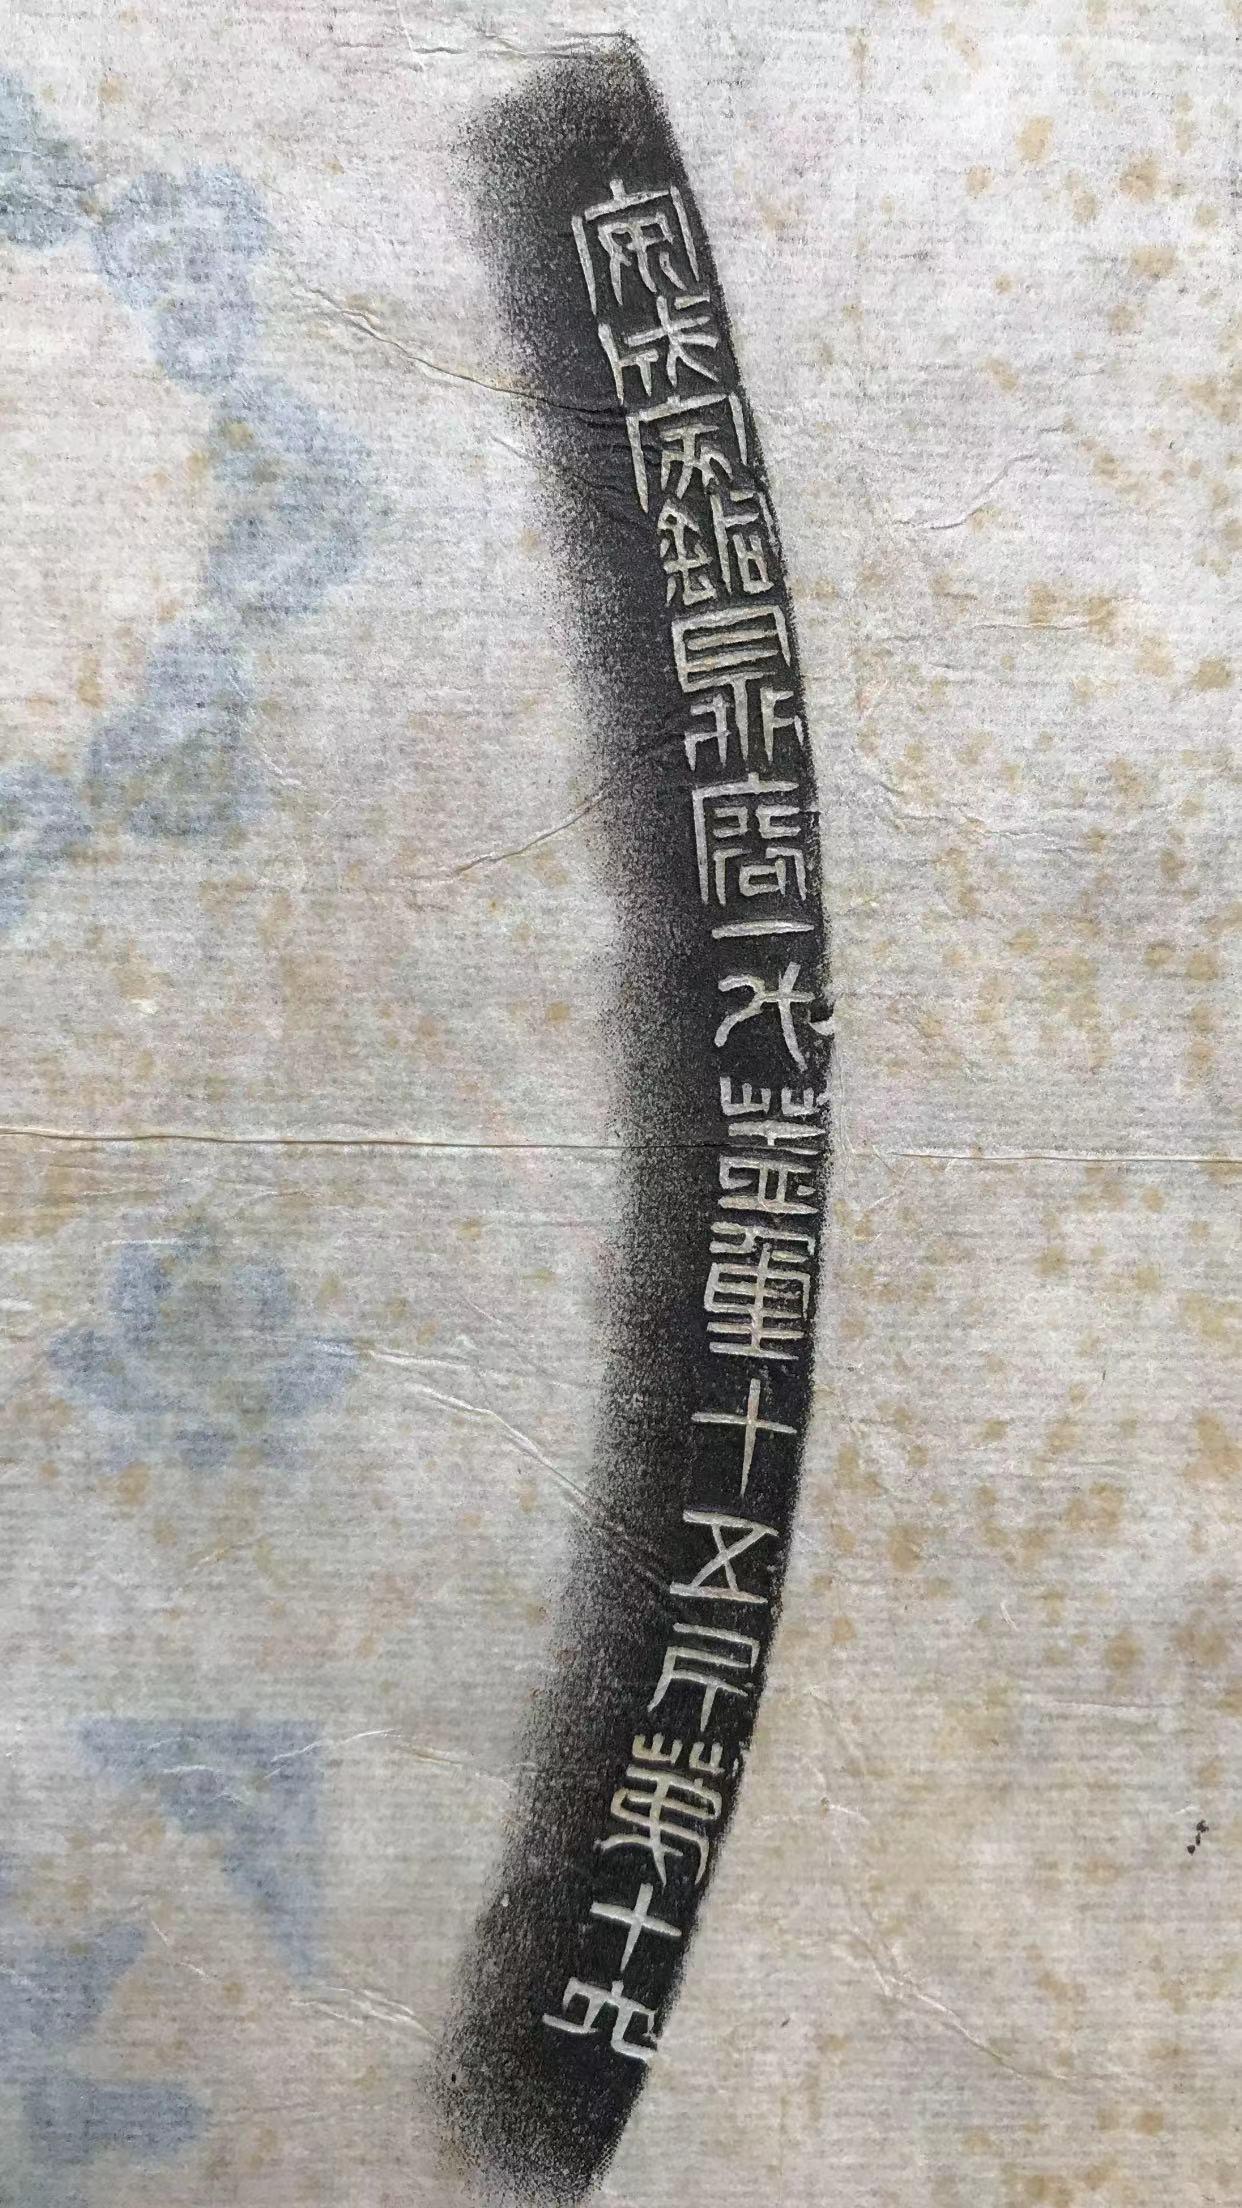 安成家銅鼎容一斗蓋重十五斤第十六